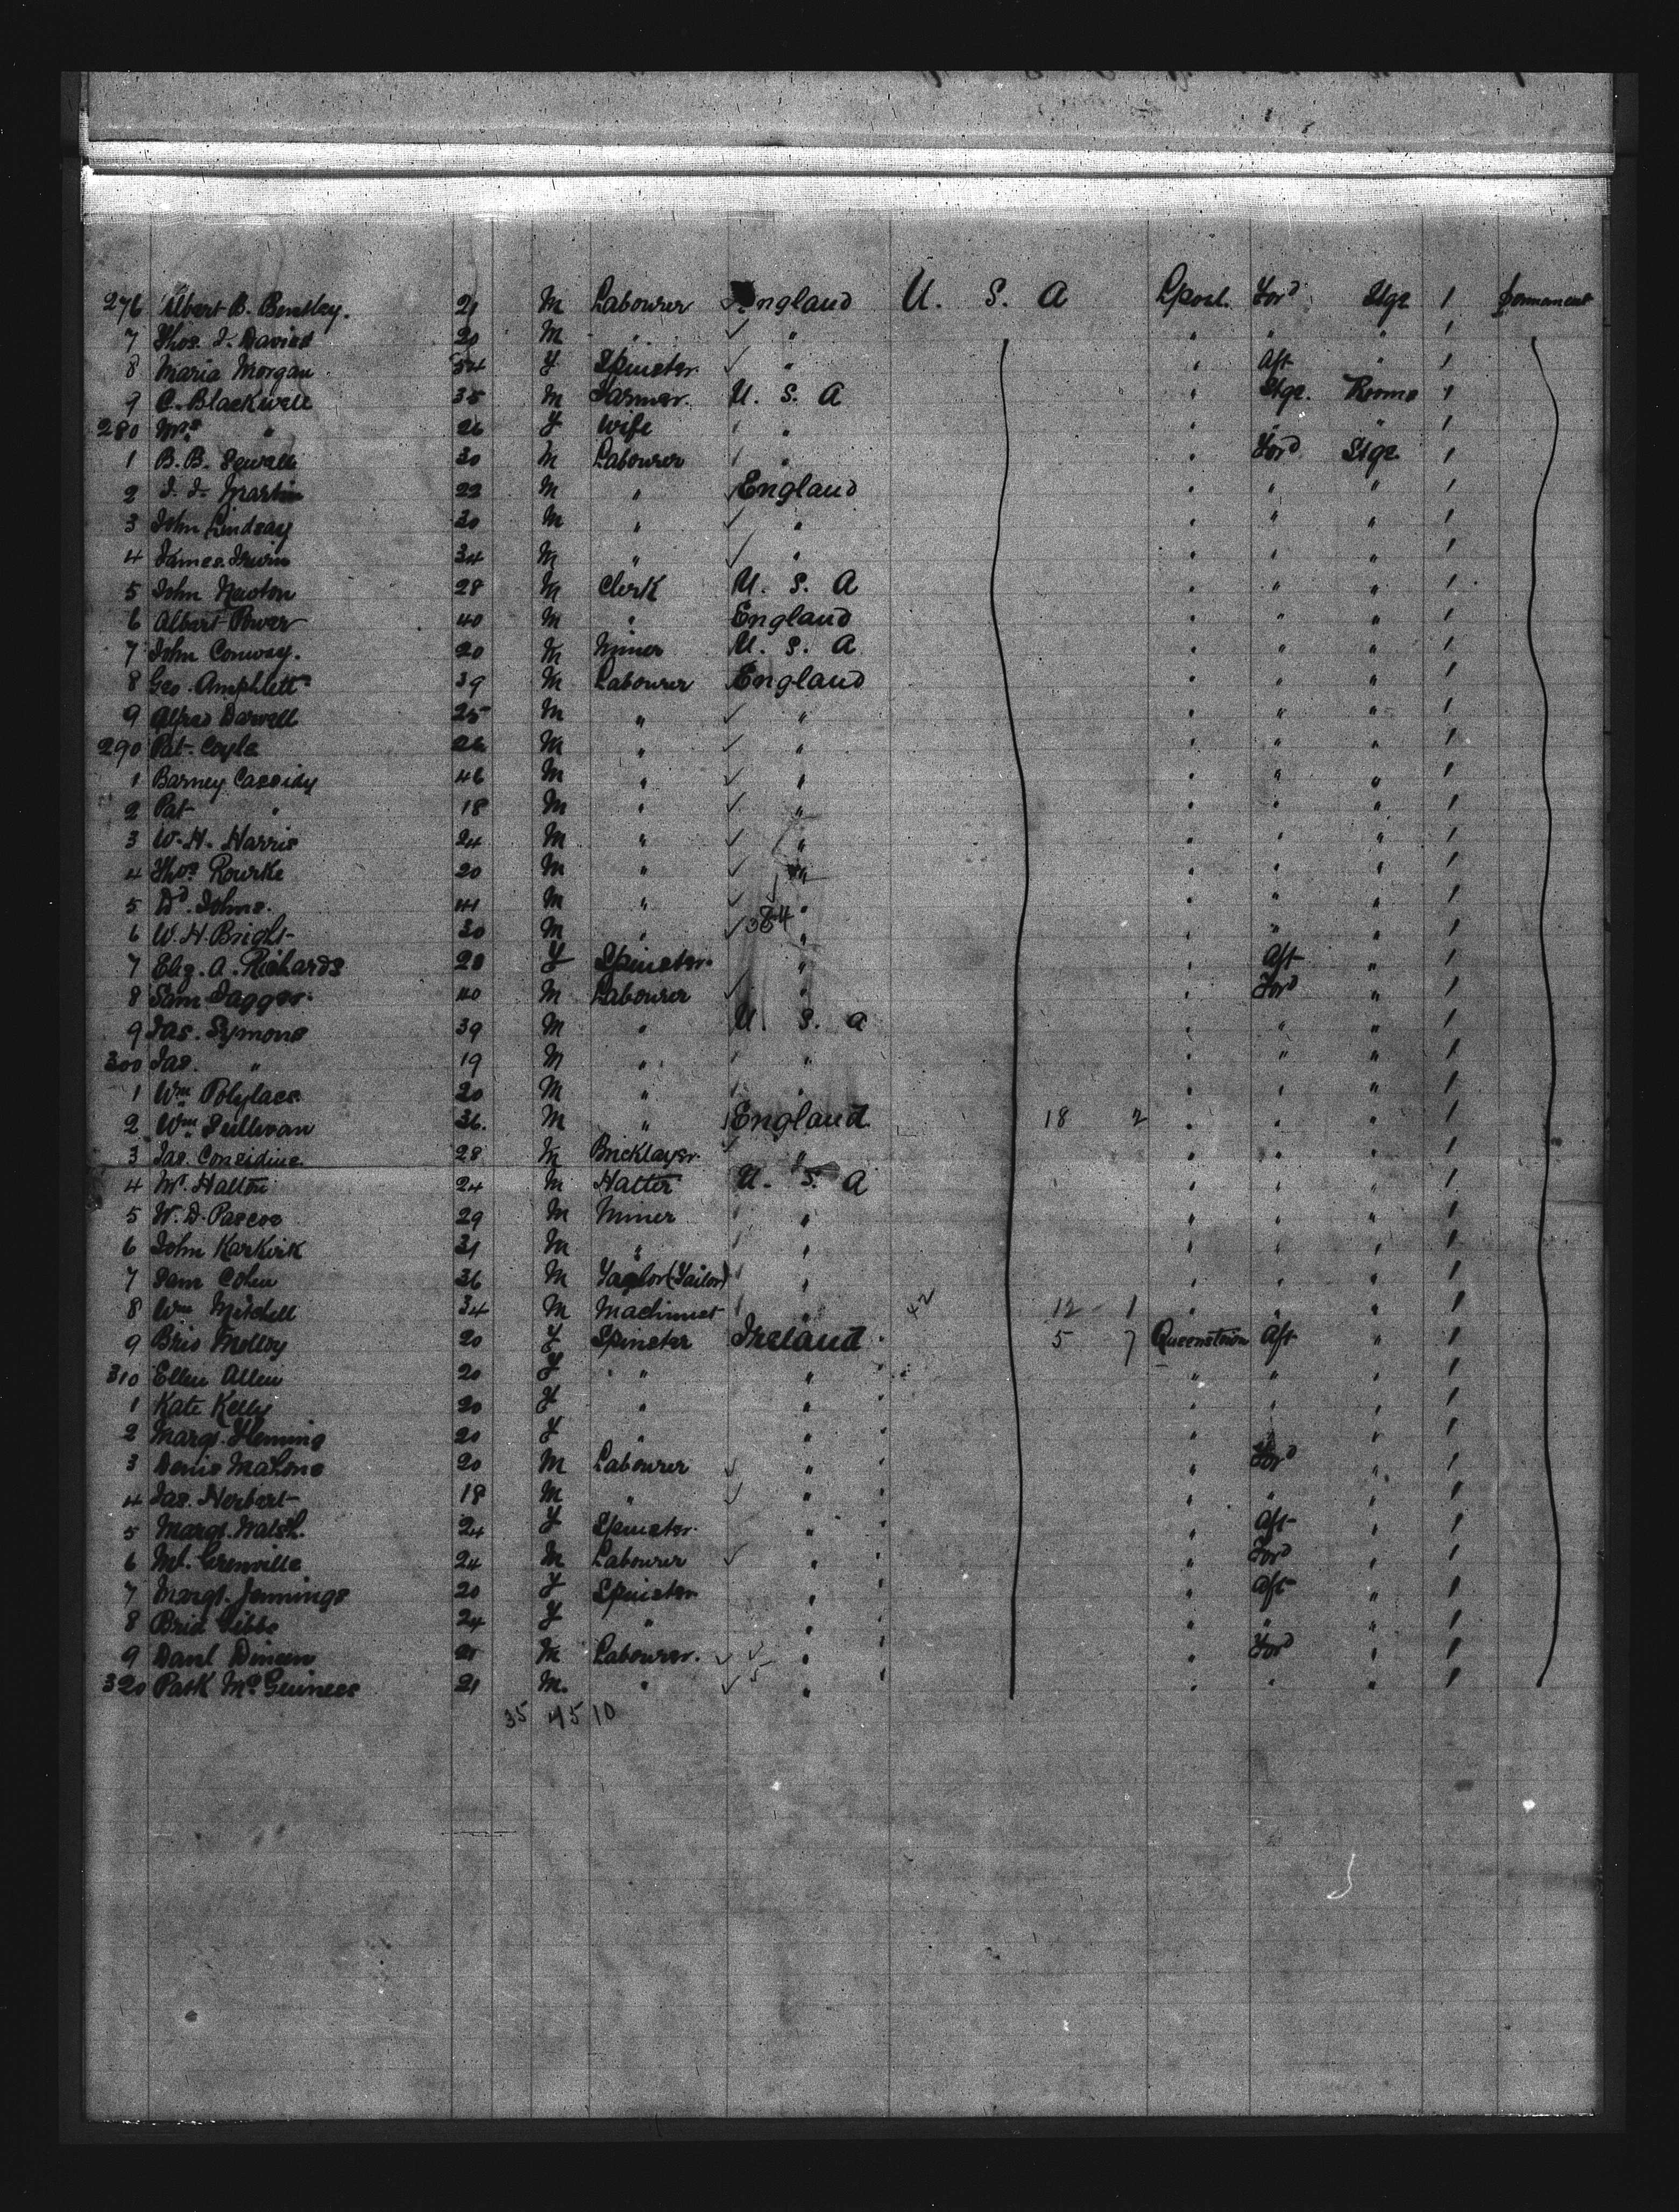 276 Albert B. Bentley. 21 M Labourer England U. S. A Lpool. Ford Stge 1 permanent
7 Thos. J. Davies 20 M " " " " " 1
8 Maria Morgan 54 F Spinster. " " Aft " 1
9 C. Blackwell 35 M Farmer. U. S. A " Stge. Rooms 1
280 Mrs " 26 F Wife " " " " 1
1 B. B. Sewell 30 M Labourer " " Ford Stge 1
2 J. J. Martin 22 M " England " " " 1
3 John Lindsay 30 M " " " " " 1
4 James Irwin 34 M " " " " " 1
5 John Newton 28 M Clerk U. S. A " " " 1
6 Albert Power 40 M " England " " " 1
7 John Conway. 20 M Miner U. S. A " " " 1
8 Geo. Amphlett 39 M Labourer England " " " 1
9 Alfred Darvell 25 M " " " " " 1
290 Pat. Coyle 26 M " " " " " 1
1 Barney Cassidy 46 M " " " " " 1
2 Pat " 18 M " " " " " 1
3 W. H. Harris 24 M " " " " " 1
4 Thos Rourke 20 M " " " " " 1
5 Dd. Johns. 41 M " " " " " 1
6 W. H. Bright 30 M " 384 " " " " 1
7 Eliz. A. Richards 28 F Spinster. " " Aft " 1
8 Sam Jagger. 40 M Labourer " " Ford " 1
9 Jas. Symons 39 M " U. S. A " " " 1
300 Jas. " 19 M " " " " " 1
1 Wm Polylace 20 M " " " " " 1
2 Wm Sullivan 36. M " England 18 2 " " " 1
3 Jas. Considine 28 M Bricklayer. " " " " 1
4 M. Halton 24 M Hatter U. S. A " " " 1
5 W. D. Pascoe 29 M Miner " " " " 1
6 John Karkirk 31 M " " " " " 1
7 Sam Cohen 36 M Taylor (Tailor) " " " " 1
8 Wm Mitchell 34 M Machinist " 42 12 1 " " " 1
9 Brid Molloy 20 F Spinster Ireland 5 7 Queenstown Aft " 1
310 Ellen Allen 20 F " " " " " 1
1 Kate Kelly 20 F " " " " " 1
2 Margt. Fleming 20 F " " " " " 1
3 Denis Mahone 20 M Labourer " " Ford " 1
4 Jas. Herbert 18 M " " " " " 1
5 Margt. Walsh. 24 F Spinster. " " Aft " 1
6 Ml. Grenville 24 M Labourer " " Ford " 1
7 Margt. Jennings 20 F Spinster " " Aft " 1
8 Brid Gibbs 24 F " " " " " 1
9 Danl Dineen 21 M Labourer. " " Ford " 1
320 Patk McGuiness 21 M. " 5 " " " " 1
35 45 10